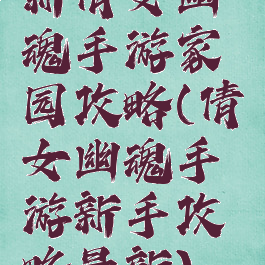 新倩女幽
魂手游家
园攻略(倩
女幽魂手
游新手攻
略最新)